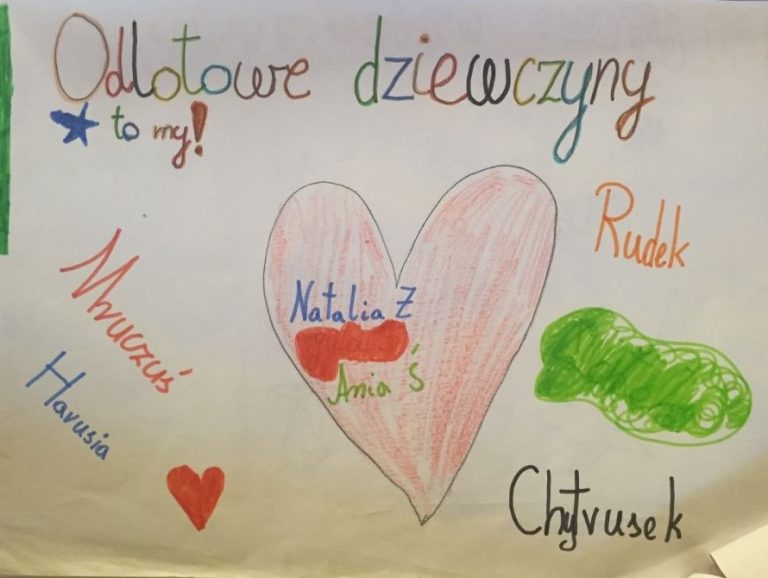 Odlotowe dziewczyny
to my!
Rudek
Mruczuś
Natalia Z
Ania Ś
Harusia
Chytrusek